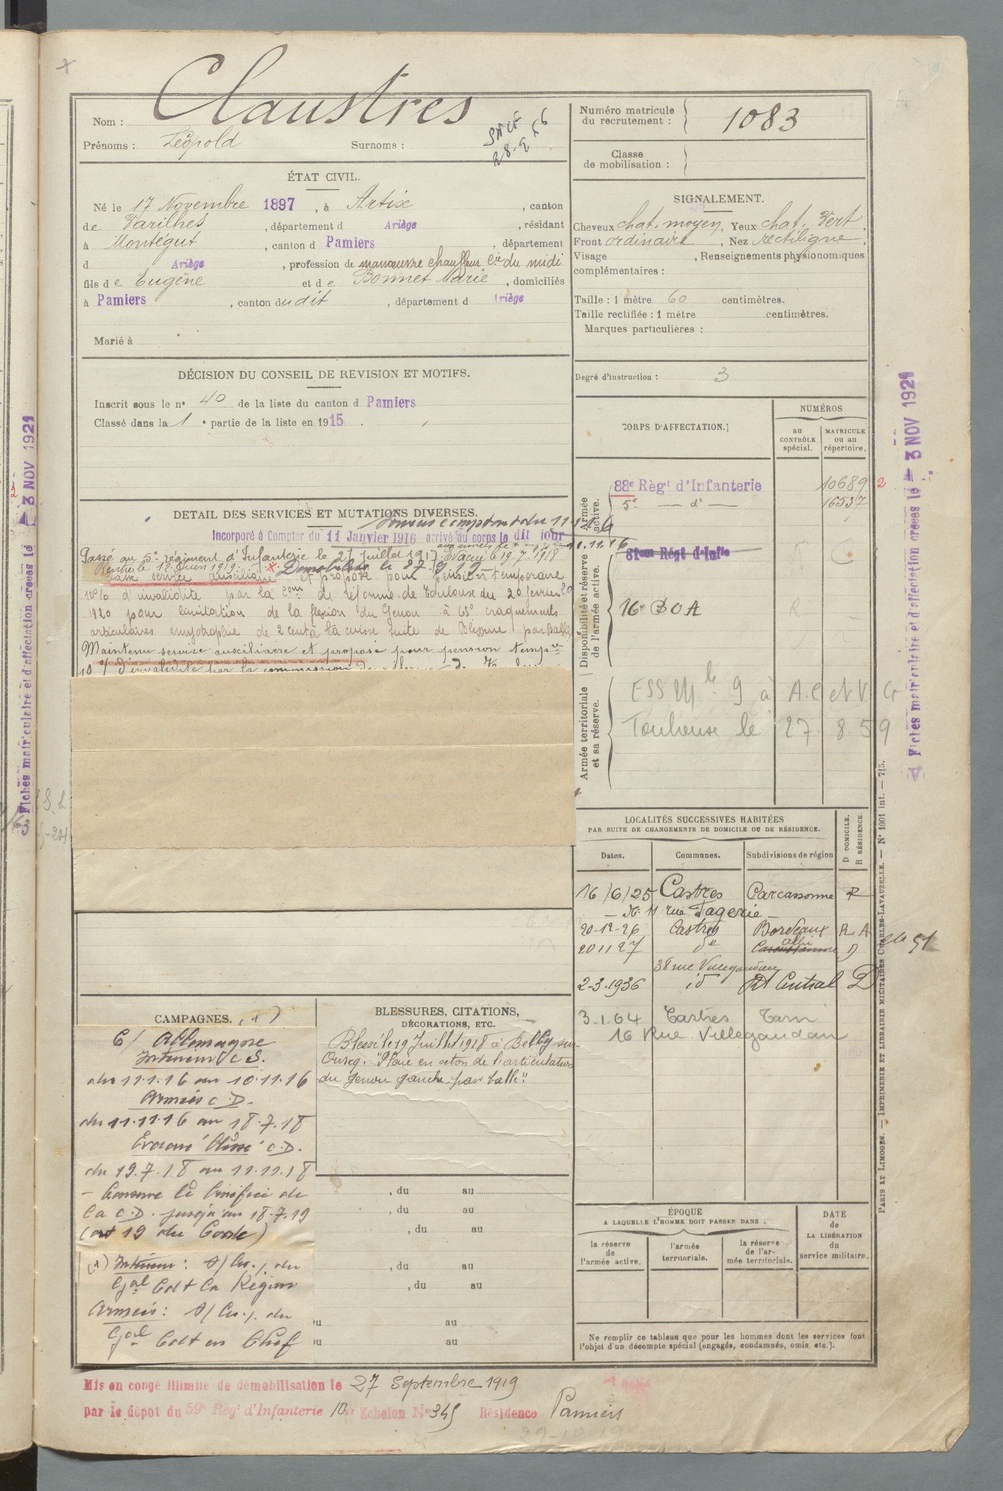 Nom : Claustres
Prénoms : Léopold Surnoms :
SNCF
28.2.56
ÉTAT CIVIL.
Né le 17 Novembre 1897, à Artix, canton
de Varilhes, département d Ariège, résidant
à Montégut, canton d Pamiers, département
d Ariège, profession de manœuvre chauffeur Cie du midi
fils de Eugène et de Bonnet Marie, domiciliés
à Pamiers, canton dudit, département d Ariège
Marié à
DÉCISION DU CONSEIL DE REVISION ET MOTIFS.
Inscrit sous le n° 40 de la liste du canton d Pamiers
Classé dans la 1 e partie de la liste en 1915.
DÉTAIL DES SERVICES ET MUTATIONS DIVERSES.
Incorporé à Compter du 11 Janvier 1916 arrivé au corps le dit jour
Passé au 5e régiment d'Infanterie le 27 juillet 1917 Évacué le 19.7.1918
Démobilisé le 27.9.19
Passé service auxiliaire et proposé pour pension temporaire
10 % d'invalidité par la Com de réforme de Toulouse du 20 février
1920 pour limitation de la flexion du Genou à 65° craquements
articulaires amyotrophie de 2 cent à la cuisse suite de Blessure par balle
Maintenu service auxiliaire et proposé pour pension tempre
10 % d'invalidité par la commission
CAMPAGNES. (1)
C/ Allemagne
Intérieur C.S.
du 11.1.16 au 10.11.16
Armées C.D.
du 11.11.16 au 18.7.18
Évacué Blessé C.D.
du 19.7.18 au 11.11.18
– Conserve le bénéfice de
la C.D. jusqu'au 18.7.19
(art 19 du Code)
(1) Intérieur : du
Gal Cdt la Région
Armées : du
Gal Cdt en Chef
BLESSURES, CITATIONS,
DÉCORATIONS, ETC.
Blessé le 19 Juillet 1918 à Billy sur
Ourcq. Plaie en séton de l'articulation
du genou gauche par balle"
, du au
, du au
, du au
, du au
, du au
au
au
Mis en congé illimité de démobilisation le 27 Septembre 1919
par le dépôt du 59e Régt d'Infanterie 10e Echelon N° 345 Résidence Pamiers
Numéro matricule
du recrutement : 1083
Classe
de mobilisation :
SIGNALEMENT.
Cheveux chat. moyen, Yeux chat. vert
Front ordinaire, Nez rectiligne
Visage , Renseignements physionomiques
complémentaires :
Taille : 1 mètre 60 centimètres.
Taille rectifiée : 1 mètre centimètres.
Marques particulières :
Degré d'instruction : 3
CORPS D'AFFECTATION.
NUMÉROS
au
contrôle
spécial.
MATRICULE
ou au
répertoire.
Armée
active.
88e Régt d'Infanterie 10689
5e — d° — 16537
2
Disponibilité et réserve
de l'armée active.
81eme Régt d'Infie
16e BOA
Armée territoriale
et sa réserve.
ESS Mle 9 à A.C et V G
Toulouse le 27.8.59
LOCALITÉS SUCCESSIVES HABITÉES
PAR SUITE DE CHANGEMENTS DE DOMICILE OU DE RÉSIDENCE.
Dates. Communes. Subdivisions de région
D DOMICILE.
R RÉSIDENCE.
16/6/25 Castres Carcassonne R
20-12-26 Castres Bordeaux R
20 11 27 de Albi D
38 rue Villegoudou
2-3-1936 id Rt Central D
3.1.64 Castres Tarn
16 Rue Villegoudou
ÉPOQUE
A LAQUELLE L'HOMME DOIT PASSER DANS :
la réserve
de
l'armée active.
l'armée
territoriale.
la réserve
de l'ar-
mée territoriale.
DATE
de
LA LIBÉRATION
du
service militaire.
Ne remplir ce tableau que pour les hommes dont les services font
l'objet d'un décompte spécial (engagés, condamnés, omis, etc.).
PARIS ET LIMOGES. — IMPRIMERIE ET LIBRAIRIE MILITAIRES CHARLES-LAVAUZELLE. — N° 1001 int. — 7|5.
Fiches matriculaire et d'affectation créées le 3 NOV 1921
Fiches matriculaire et d'affectation créées le 3 NOV 1921